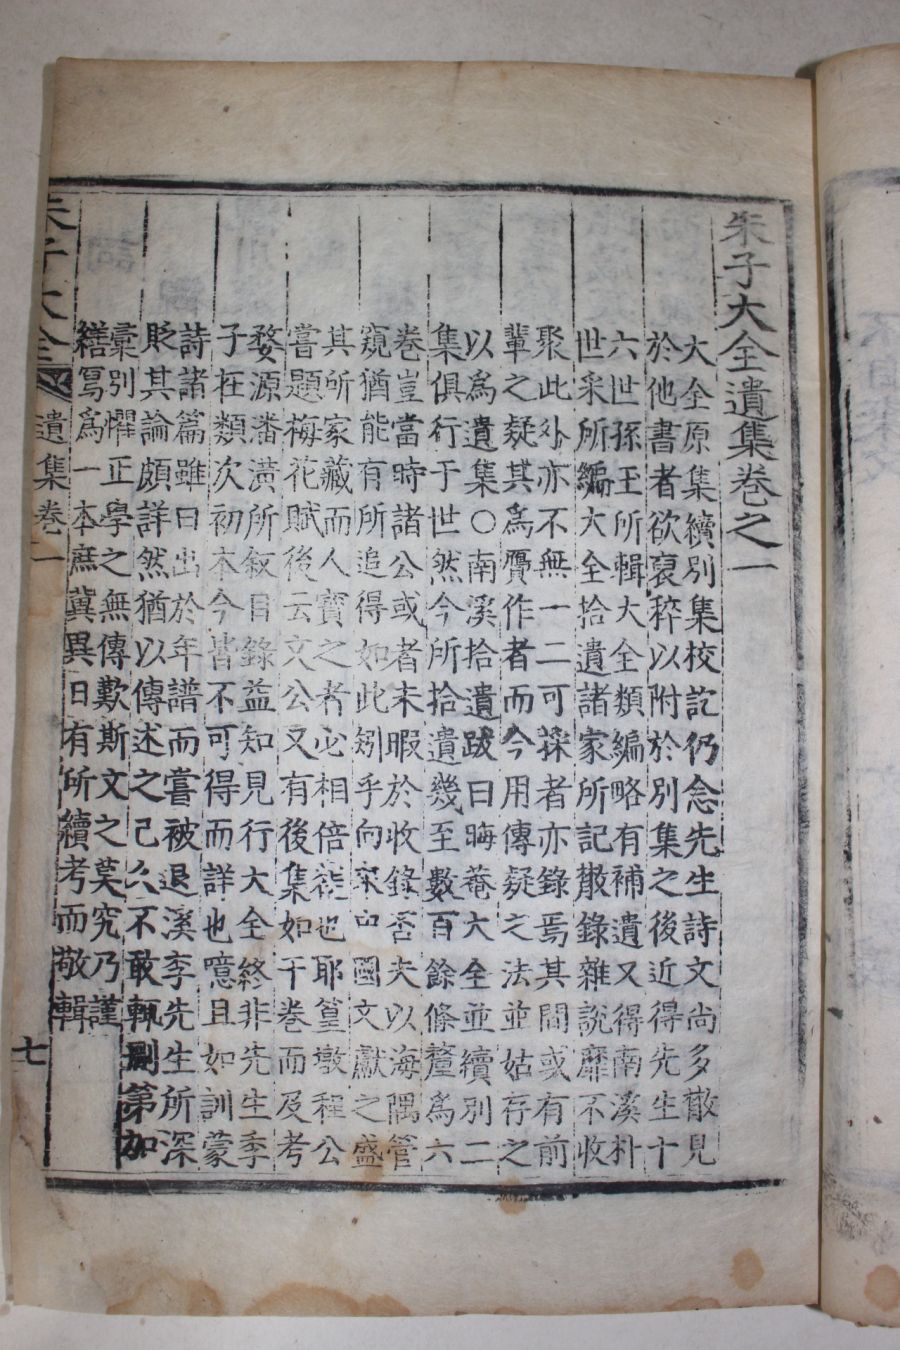 朱子大全遺集卷之一
大全原集續別集校訖仍念先生詩文尚多散見
於他書者欲裒稡以附於別集之後近得先生十
六世孫玉所輯大全類編略有補遺又得南溪朴
世采所編大全拾遺諸家所記散錄雜說靡不收
聚此外亦不無一二可採者亦錄焉其間或有前
輩之疑其爲贋作者而今用傳疑之法並姑存之
以爲遺集○南溪拾遺跋曰晦菴大全並續別二
集俱行于世然今所拾遺幾至數百餘條釐爲六
卷豈當時諸公或者未暇於收錄否夫以海隅管
窺猶能有所追得如此矧乎向宋中國文獻之盛
其所家藏而人寶之者必相倍蓰也耶篁墩程公
嘗題梅花賦後云文公又有後集如干卷而及考
婺源潘潢所叙目錄益知見行大全終非先生季
子在類次初本今皆不可得而詳也噫且如訓蒙
詩諸篇雖曰出於年譜而嘗被退溪李先生所深
貶其論頗詳然猶以傳述之已久不敢輒刪第加
彙別懼正學之無傳歎斯文之莫究乃謹
繕寫爲一本庶冀異日有所續考而敬輯
朱子大全 遺集卷一 七